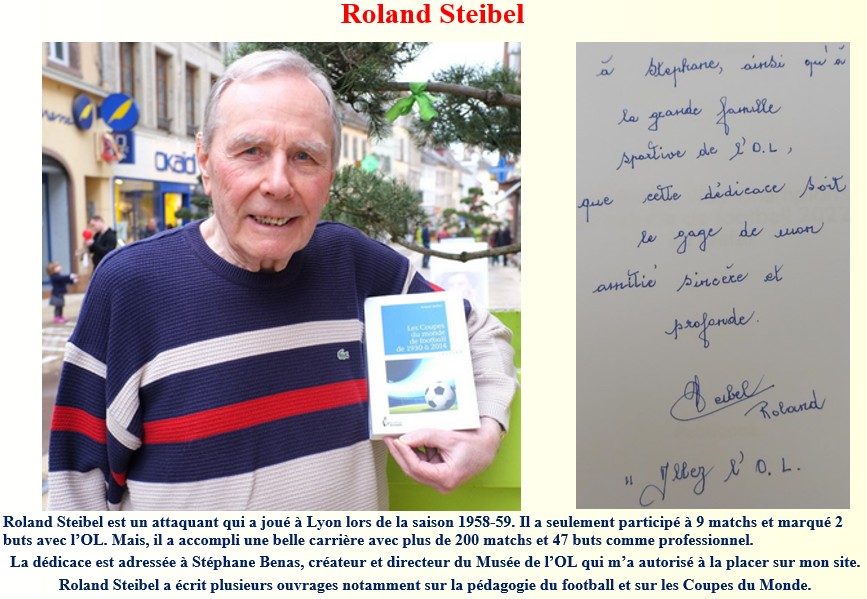 Roland Steibel
OKAIDI
Les Coupes
du monde
de football
de 1930 à 2014
à Stéphane, ainsi qu'à
la grande famille
sportive de l'O.L,
que cette dédicace soit
le gage de mon
amitié sincère et
profonde.
Steibel
Roland
" Allez l'O.L.
Roland Steibel est un attaquant qui a joué à Lyon lors de la saison 1958-59. Il a seulement participé à 9 matchs et marqué 2
buts avec l'OL. Mais, il a accompli une belle carrière avec plus de 200 matchs et 47 buts comme professionnel.
La dédicace est adressée à Stéphane Benas, créateur et directeur du Musée de l'OL qui m'a autorisé à la placer sur mon site.
Roland Steibel a écrit plusieurs ouvrages notamment sur la pédagogie du football et sur les Coupes du Monde.